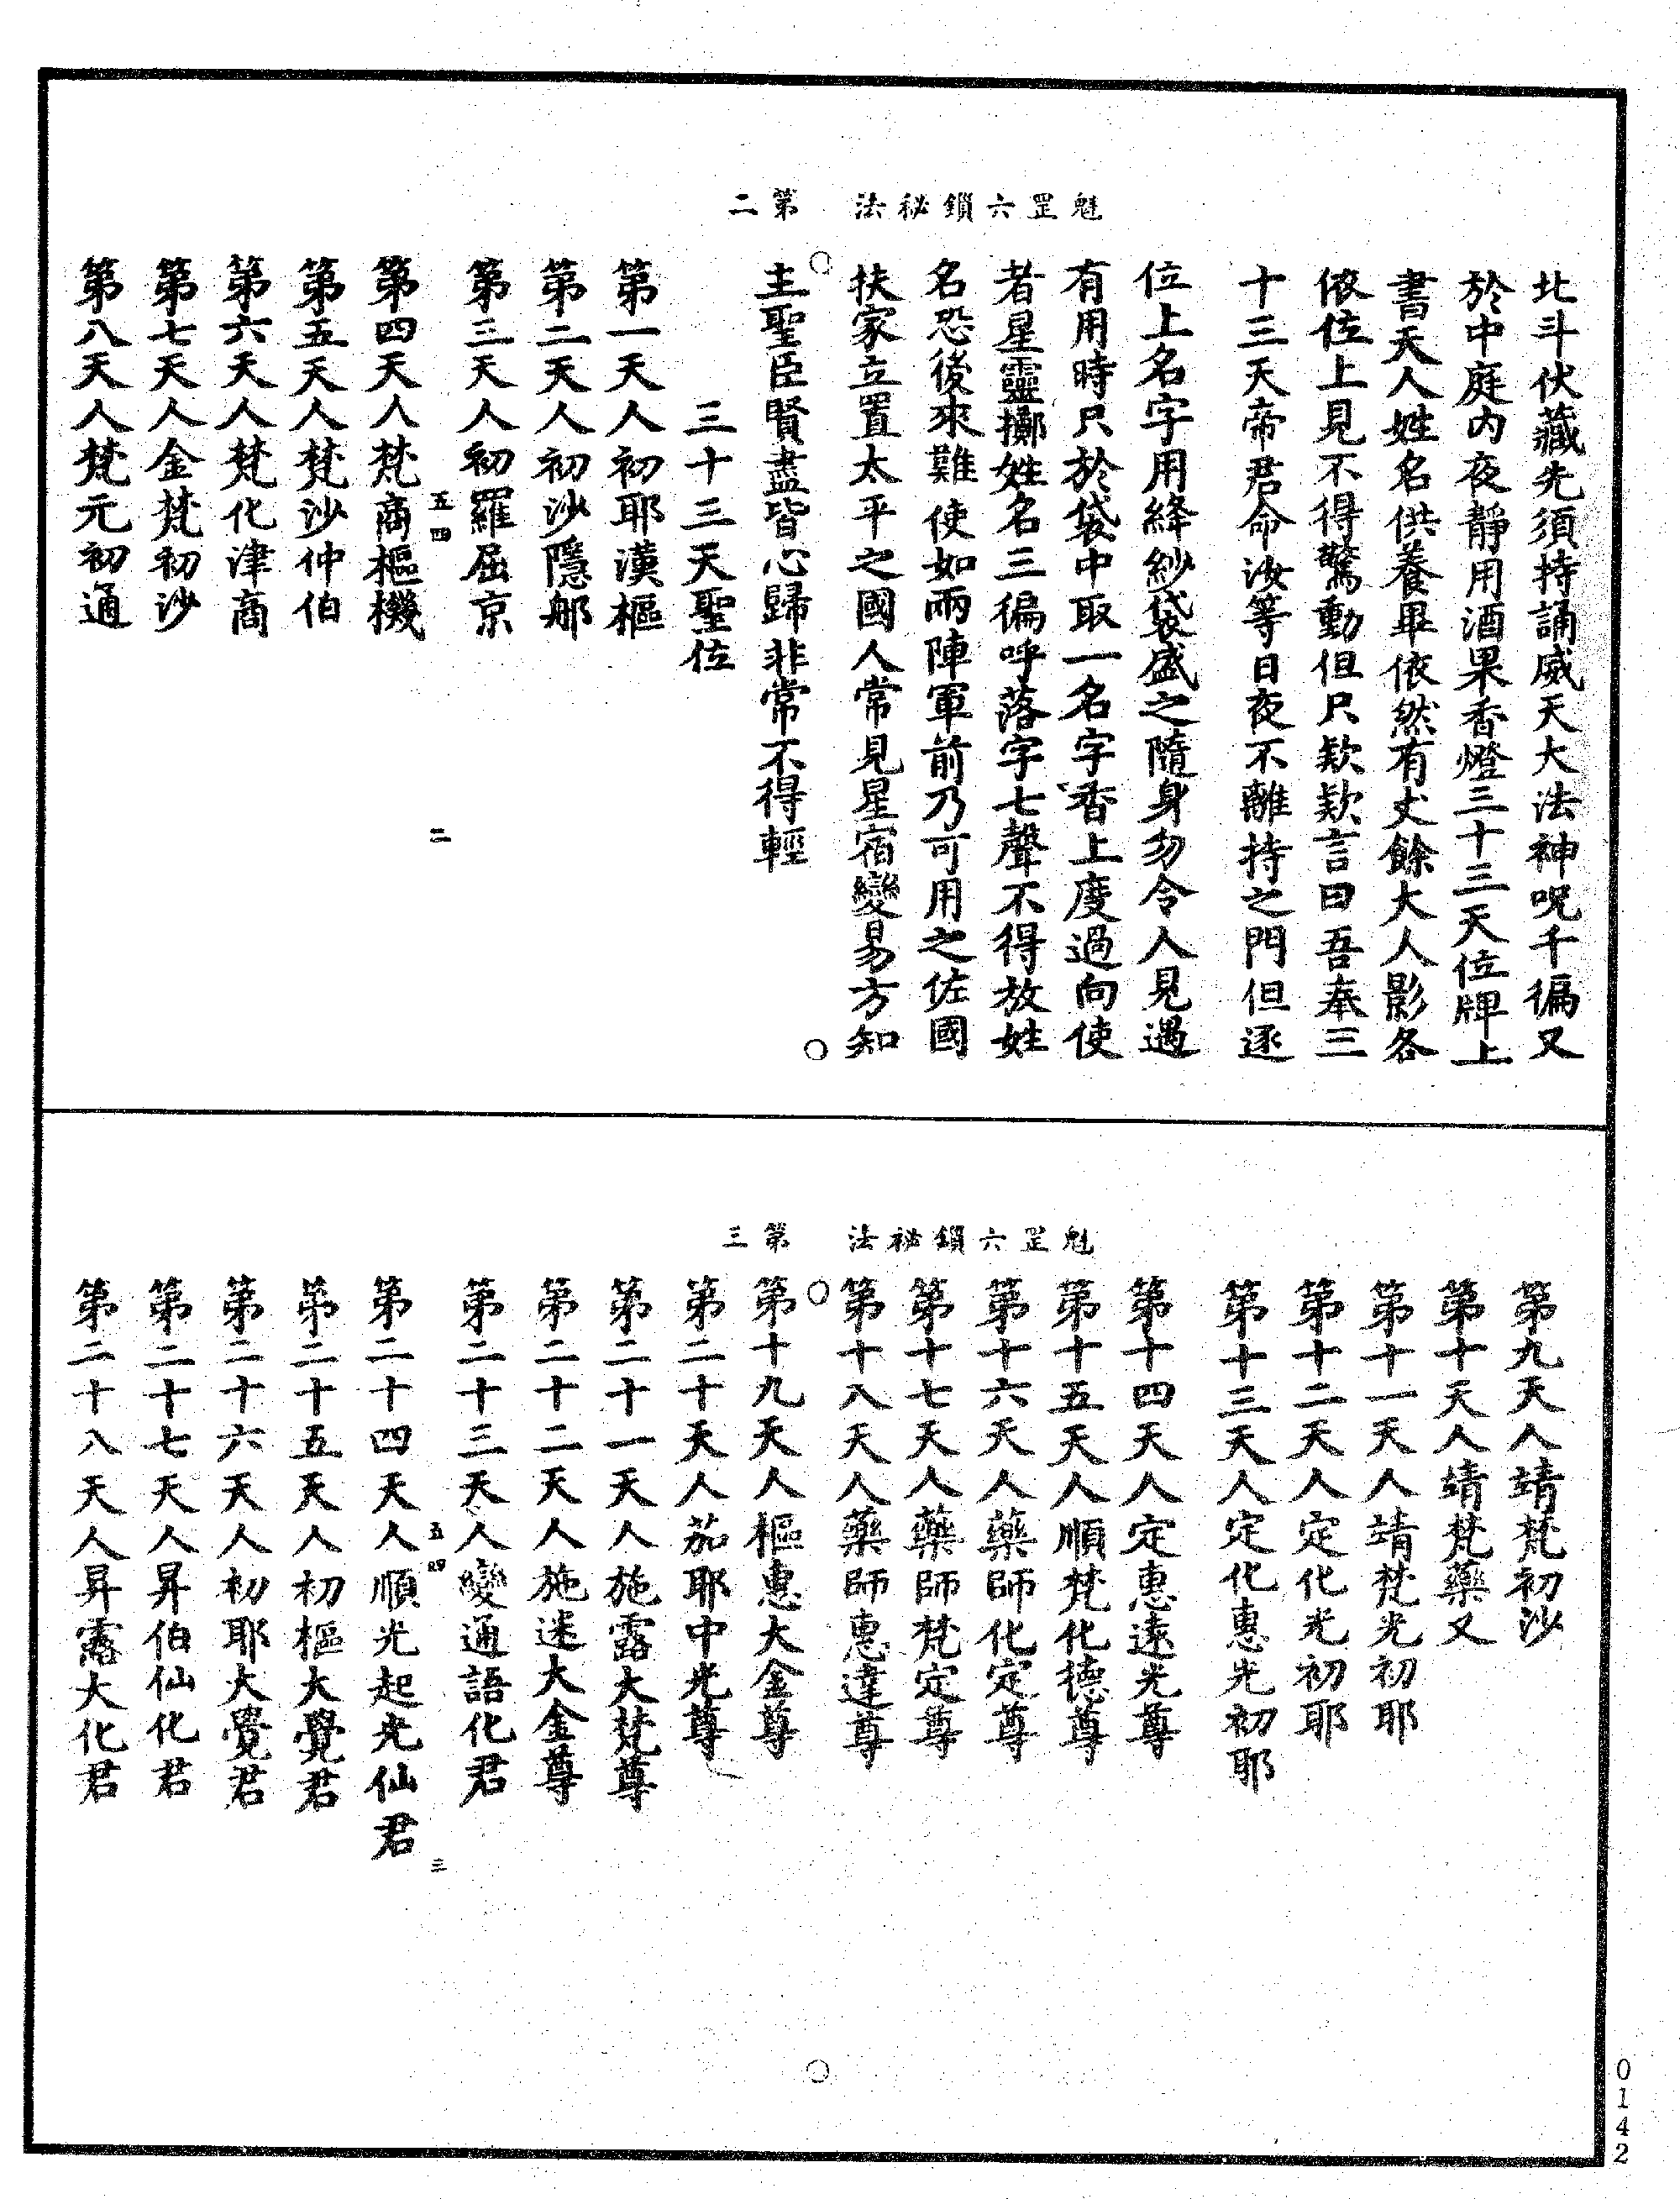 魁罡六鎖祕法　第二
北斗伏藏先須持誦威天大法神呪千徧又
於中庭內夜靜用酒果香燈三十三天位牌上
書天人姓名供養畢依然有丈餘大人影各
依位上見不得驚動但只歎歎言曰吾奉三
十三天帝君命汝等日夜不離持之門但逐
位上名字用絳紗袋盛之隨身勿令人見遇
有用時只於袋中取一名字香上度過向使
者星靈擲姓名三徧呼落字七聲不得放姓
名恐後來難使如兩陣軍前乃可用之佐國
扶家立置太平之國人常見星宿變易方知
主聖臣賢盡皆心歸非常不得輕
三十三天聖位
第一天人初耶漢樞
第二天人初沙隱郍
第三天人初羅屈京
五四　二
第四天人梵商樞機
第五天人梵沙仲伯
第六天人梵化津商
第七天人金梵初沙
第八天人梵元初通
魁罡六鎖祕法　第三
第九天人靖梵初沙
第十天人靖梵藥叉
第十一天人靖梵光初耶
第十二天人定化光初耶
第十三天人定化惠光初耶
第十四天人定惠遠光尊
第十五天人順梵化德尊
第十六天人藥師化定尊
第十七天人藥師梵定尊
第十八天人藥師惠達尊
第十九天人樞惠大金尊
第二十天人茄耶中光尊
第二十一天人施露大梵尊
第二十二天人施迷大金尊
第二十三天人變通語化君
五四　三
第二十四天人順光起光仙君
第二十五天人初樞大覺君
第二十六天人初耶大覺君
第二十七天人昇伯仙化君
第二十八天人昇露大化君
0142